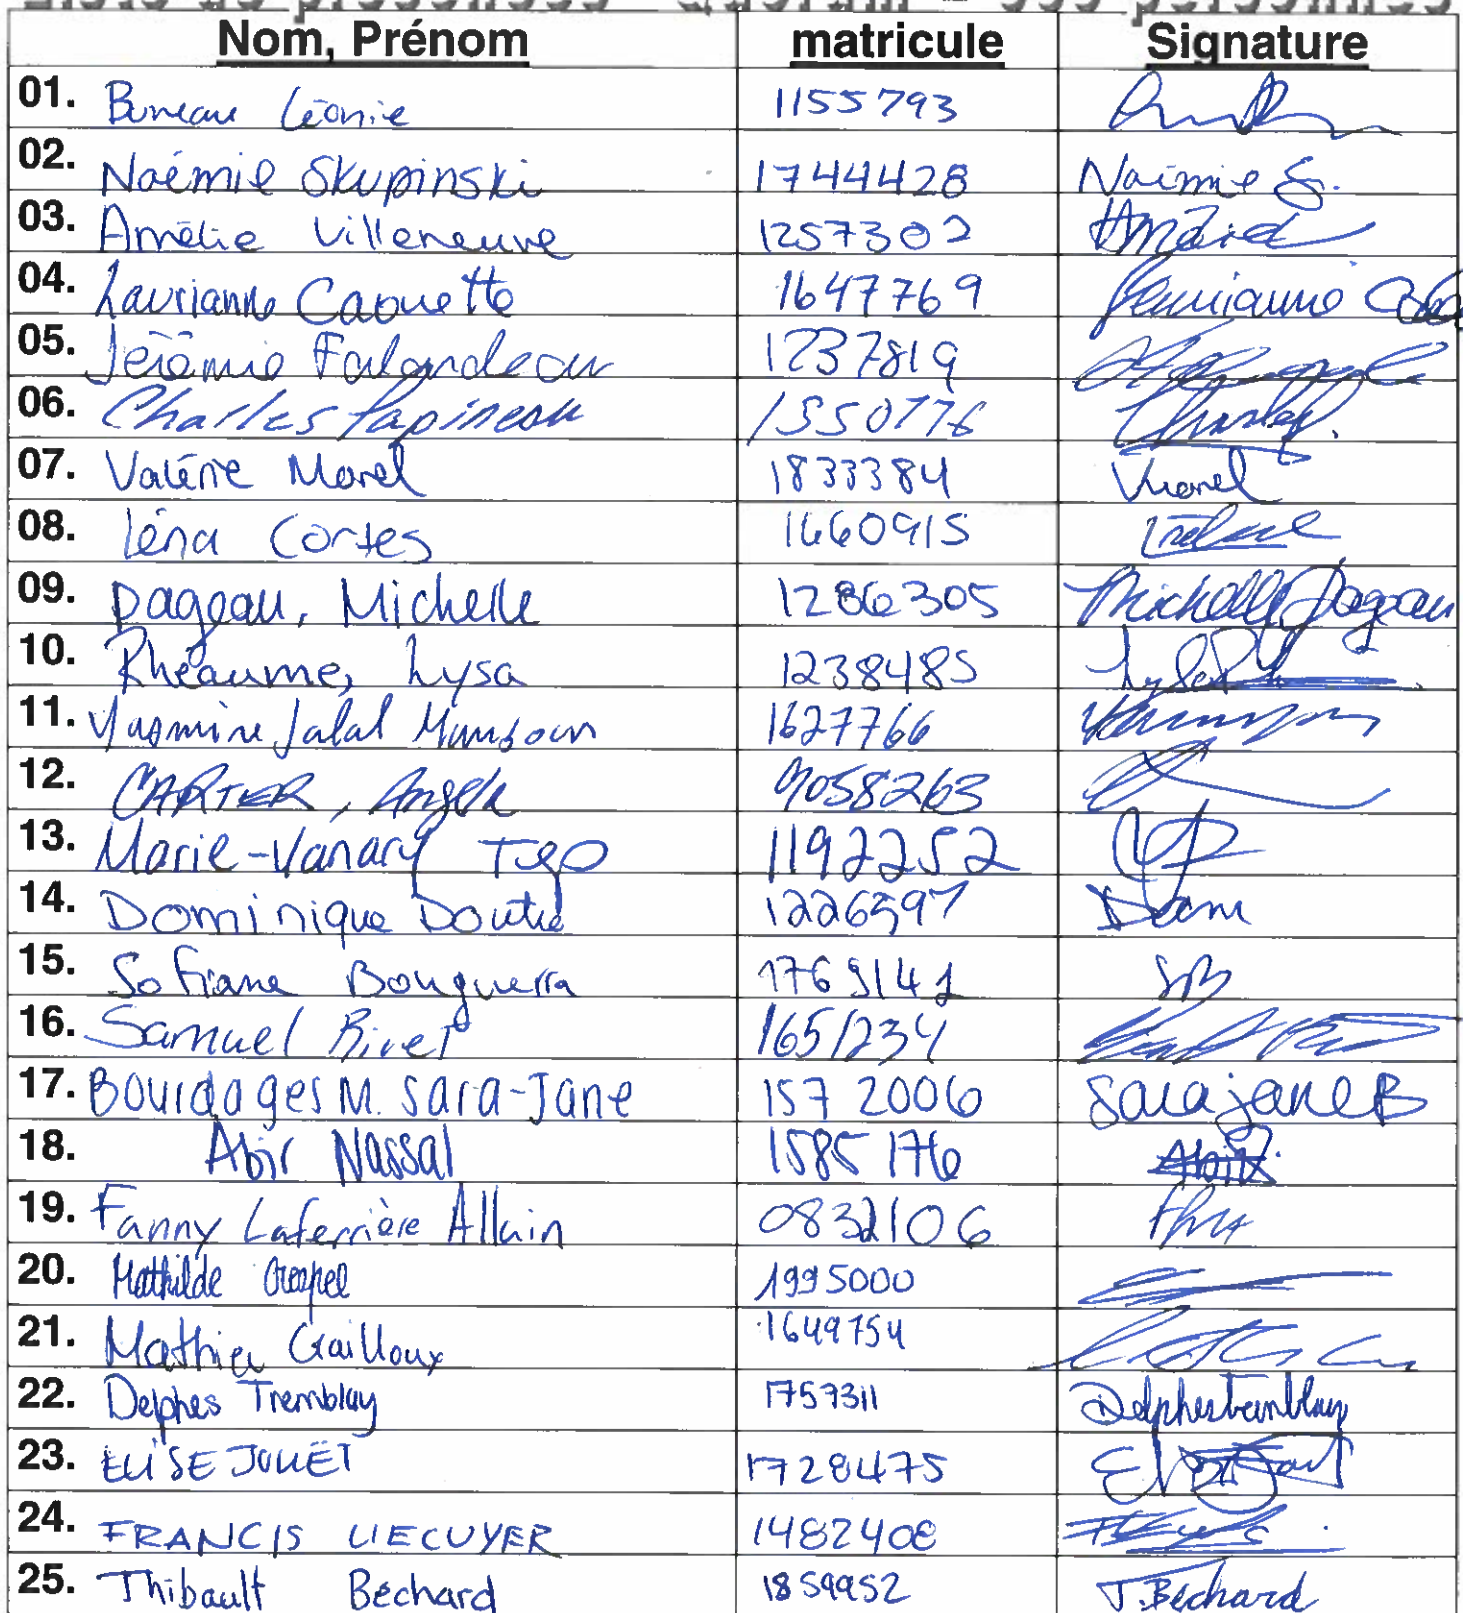 Liste de présences - Quorum - personnes
Nom, Prénom matricule Signature
01. Buneau Léonie 1155793
02. Noémie Skupinski 1744428 Noémie S.
03. Amélie Villeneuve 1257302 Amélie
04. Laurianne Caouette 1647769 Laurianne
05. Jérémie Falardeau 1237819
06. Charles Papineau 1550776 Charles P.
07. Valérie Morel 1833384 VMorel
08. Léna Cortes 1660915
09. Pageau, Michelle 1286305 Michelle Pageau
10. Rhéaume, Lysa 1238485
11. Yasmine Jalal Mansour 1627766
12. CARTER, Angela 9058263
13. Marie-Vanary Tep 1192252
14. Dominique Doutre 1226597
15. Sofiane Bouguerra 1769141 SB
16. Samuel Rivet 1651234
17. Bourdages M. Sara-Jane 1572006 Sara jane B
18. Abir Nassal 1585176 Abir
19. Fanny Laferrière Allain 0832106
20. Mathilde Crespel 1995000
21. Mathieu Cailloux 1649754
22. Delphes Tremblay 1757311 Delphes tremblay
23. ELISE JOUËT 1728475
24. FRANCIS LIECUYER 1482408
25. Thibault Béchard 1859952 T. Béchard